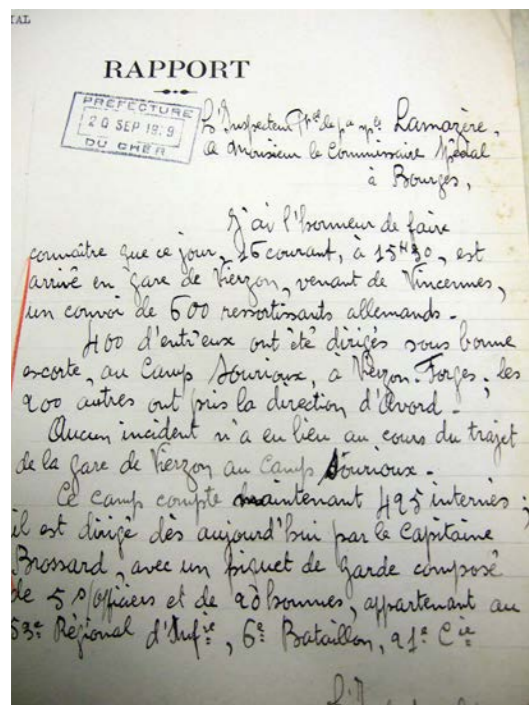 IAL
RAPPORT
PRÉFECTURE
20 SEP 1939
DU CHER
L'Inspecteur Ppal de pce spéc Lamazère,
à Monsieur le Commissaire Spécial
à Bourges,
J'ai l'honneur de faire
connaître que ce jour, 16 courant, à 15H30, est
arrivé en gare de Vierzon, venant de Vincennes,
un convoi de 600 ressortissants allemands.
400 d'entr'eux ont été dirigés sous bonne
escorte, au Camp Sourioux, à Vierzon-Forges; les
200 autres ont pris la direction d'Avord.-
Aucun incident n'a eu lieu au cours du trajet
de la gare de Vierzon au Camp Sourioux.-
Ce camp compte maintenant 495 internés,
il est dirigé dès aujourd'hui par le Capitaine
Brossard, avec un piquet de garde composé
de 5 s/officiers et de 20 hommes, appartenant au
53e Régional d'Infie, 6e Bataillon, 21e Cie